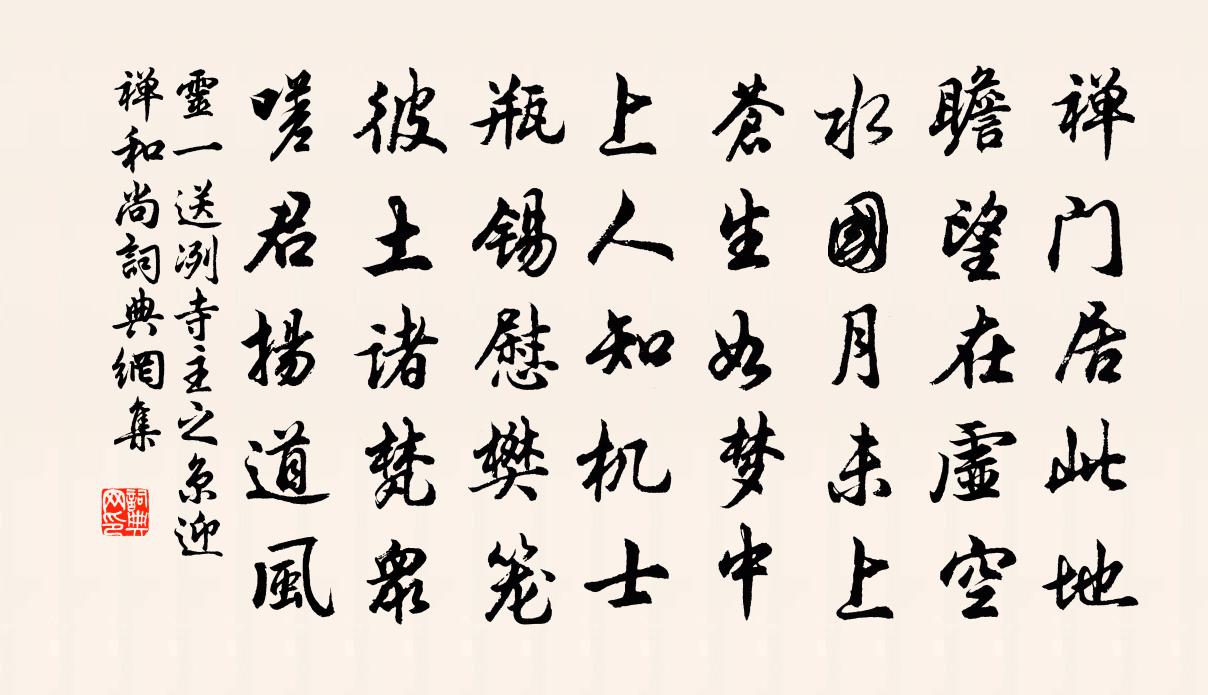 禅门居此地
瞻望在虛空
水國月未上
蒼生如梦中
上人知机士
瓶锡慰樊笼
彼土诸梵眾
嗟君揚道風
靈一送冽寺主之京迎
禅和尚詞典網集
詞典网印